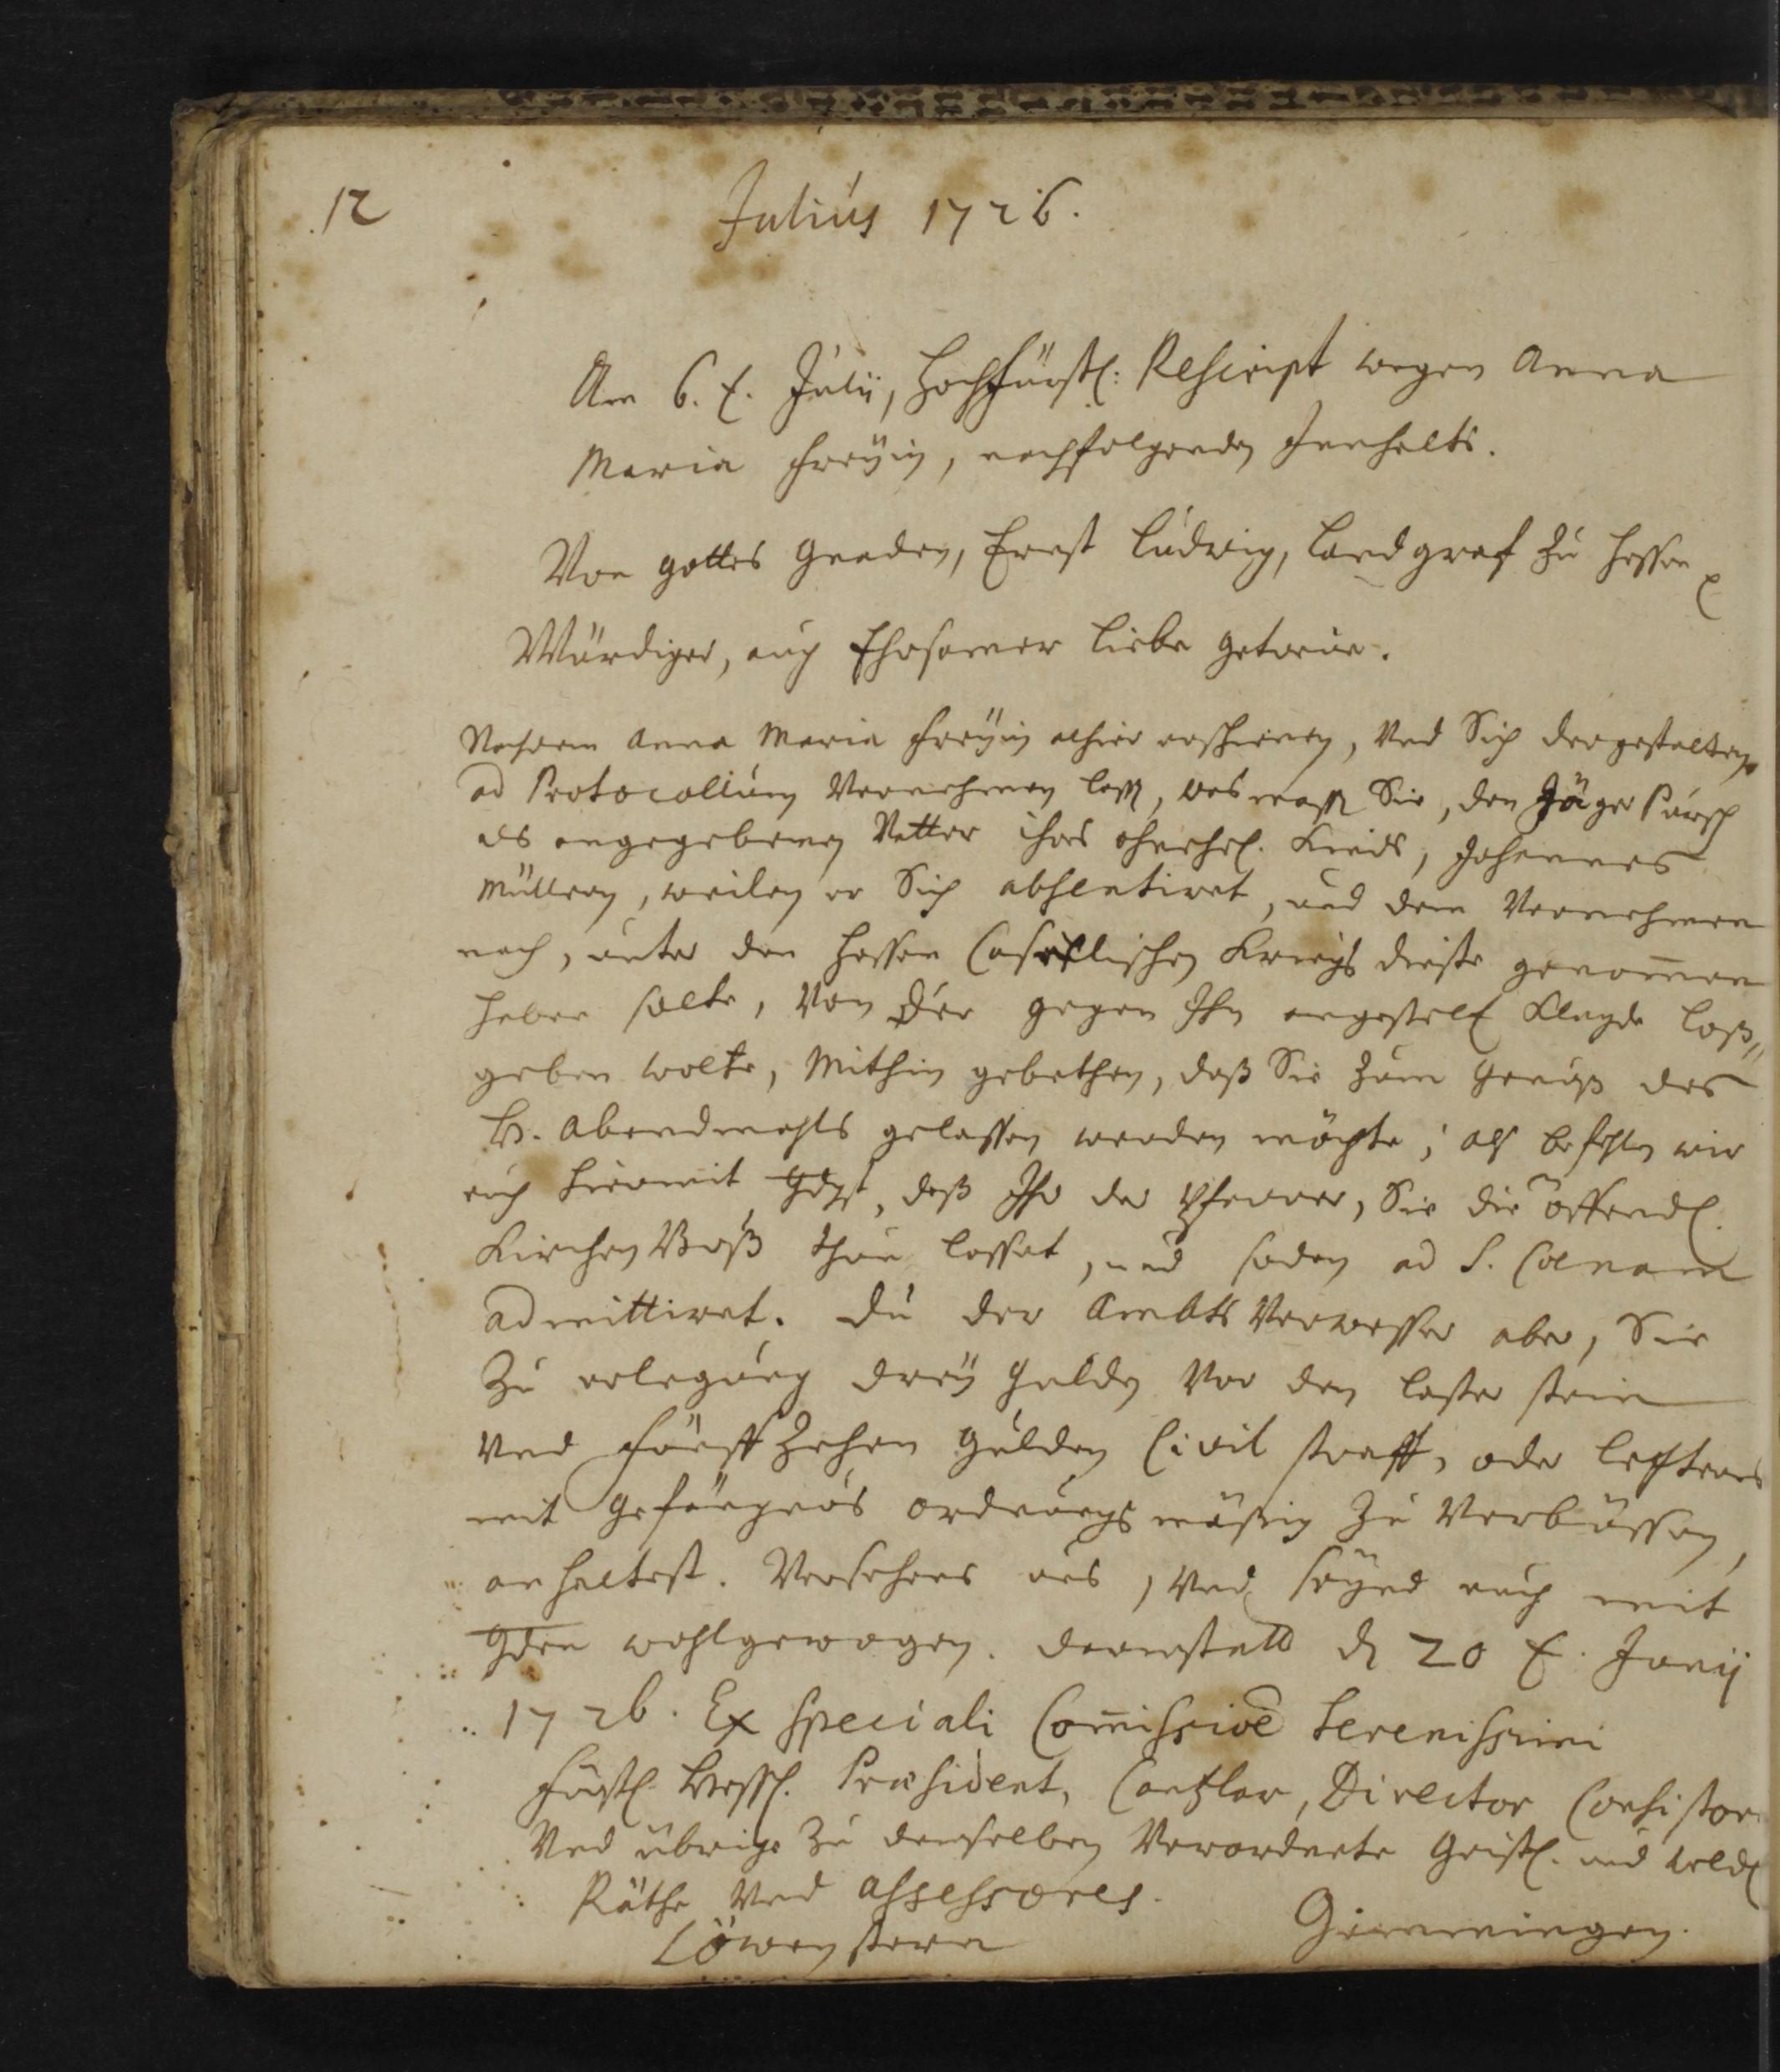 12
Julius 1726.
Am 6. t. Julii, Hochfürstl: Rescript wegen Anna
Maria Freyin, nachfolgenden Innhalts.
Von gottes Gnaden, Ernst Ludwig, Landgraf zu Hessen
Würdiger, auch Ehrsamer liebe getreue.
Nachdem Anna Maria Freyin alhier erschienen, Und Sich dergestalten
ad Protocollum Vernehmen lassen, was massen Sie, den Jäger Pursch
als angegebenen Vatter ihres ohnehel. Kinds, Johannes
Müllern, weilen er Sich absentiret, und dem Vernehmen
nach, unter den Hessen Casselischen Kriegs dienste genom̄en
haben solte, Von der gegen Ihn angestelt Klagde loß
geben wolte, Mithin gebethen, daß Sie zum Genuß des
H. Abendmahls gelassen werden möchte; als befehlen wir
euch hiermit gdgst, daß Ihr der Pfarrer, Sie die öffendl.
Kirchen Buß thun lasset, und sodan ad S. Coenam
admittiret. Du der Ambts Verweser aber, Sie
Zu erlegung drey Gulden Vor den laster stein
Und Fünff Zehen Gulden Civil straff, oder letzteres
mit Gefängnus ordnungs mäßig zu Verbüssen,
anhaltest. Versehens uns, Und seynd euch mit
Gden wohlgewogen. Darmstatt d 20 t. Junij
1726. Ex Speciali Com̄issione Serenissimi
Fürstl. Hessl. Præsident, Cantzlar, Director Consistor
Und übrige zu demselben Verordnete Geistl. und weldl
Räthe Und Assessores.
Löwenstern Gemmingen.